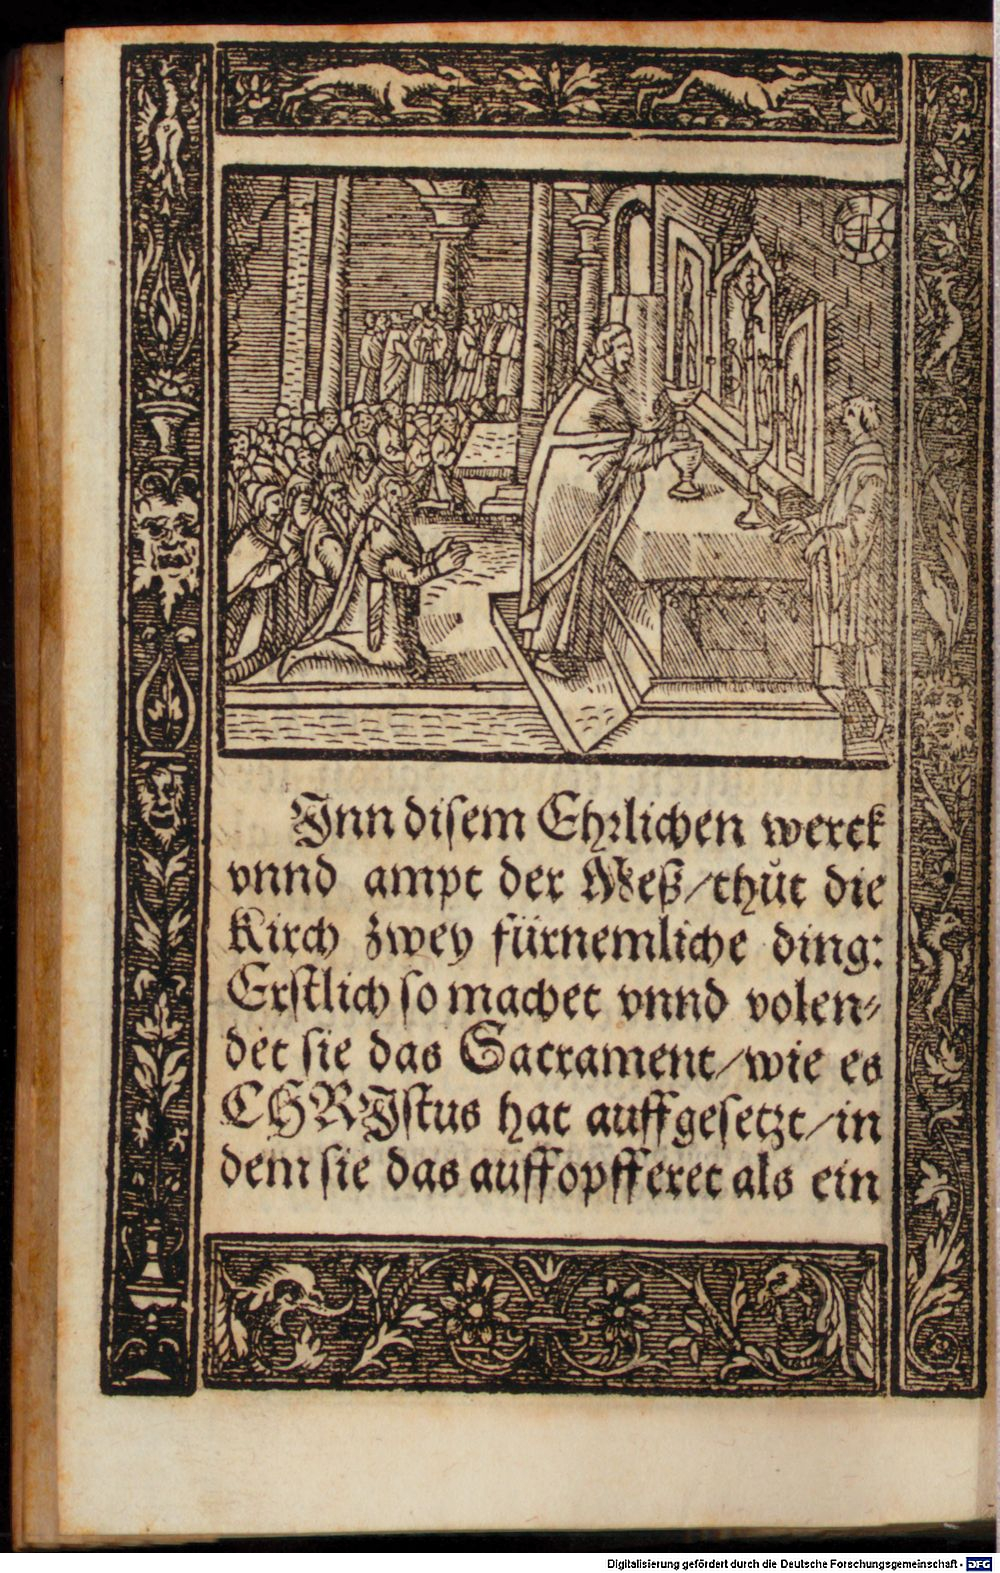 Jnn disem Ehrlichen werck
vnnd ampt der Meß / thuͦt die
Kirch zwey fürnemliche ding:
Erstlich so machet vnnd volen⸗
det sie das Sacrament / wie es
CHRJstus hat auffgesetzt / in
dem sie das auffopfferet als ein
Digitalisierung gefördert durch die Deutsche Forschungsgemeinschaft - DFG